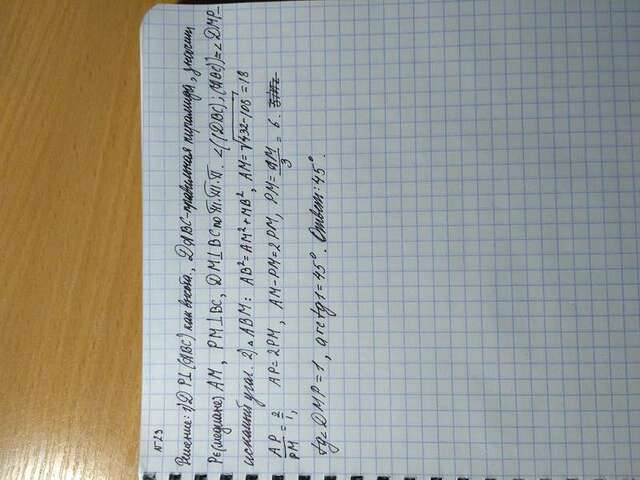 N 23
Решение: 1) DP⊥(ABC) как высота., DABC-правильная пирамида, значит
P∈(медиане) AM, PM⊥BC, DM⊥BC по т.т.п. ∠((DBC);(ABC))=∠DMP-
искомый угол. 2) △ABM: AB²=AM²+MB², AM=√432-108=18
AP/PM=2/1, AP=2PM, AM-PM=2PM, PM=AM/3=6.
tg∠DMP=1, arctg1=45°. Ответ: 45°.